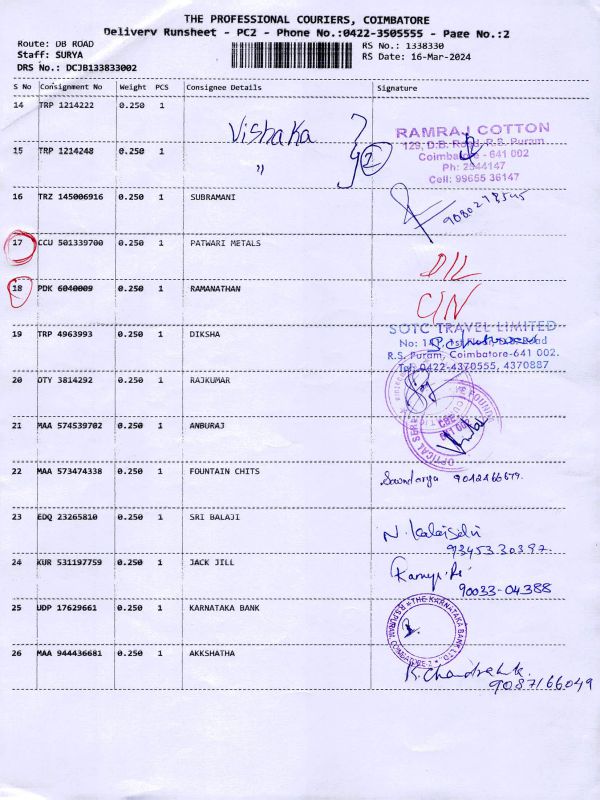 THE PROFESSIONAL COURIERS, COIMBATORE
Delivery Runsheet - PC2 - Phone No.:0422-3505555 - Page No.:2
Route: DB ROAD RS No.: 1338330
Staff: SURYA RS Date: 16-Mar-2024
DRS No.: DCJB133833002
S No Consignment No Weight PCS Consignee Details Signature
14 TRP 1214222 0.250 1 Vishaka
RAMRAJ COTTON
129, D.B. Road, R.S. Puram
15 TRP 1214248 0.250 1 " 2
Coimbatore - 641 002
Ph: 2544147
Cell: 99655 36147
16 TRZ 145006916 0.250 1 SUBRAMANI
17 CCU 501339700 0.250 1 PATWARI METALS D/L
18 PDK 6040009 0.250 1 RAMANATHAN C/N
SOTC TRAVEL LIMITED
19 TRP 4963993 0.250 1 DIKSHA
R.S. Puram, Coimbatore-641 002.
Tel: 0422-4370555, 4370887
20 OTY 3814292 0.250 1 RAJKUMAR
21 MAA 574539702 0.250 1 ANBURAJ
22 MAA 573474338 0.250 1 FOUNTAIN CHITS Soundarya
23 EDQ 23265810 0.250 1 SRI BALAJI N. Kalaiselvi
9345330397
24 KUR 531197759 0.250 1 JACK JILL
90033-04388
25 UDP 17629661 0.250 1 KARNATAKA BANK
THE KARNATAKA BANK LTD.
26 MAA 944436681 0.250 1 AKKSHATHA
9087166049